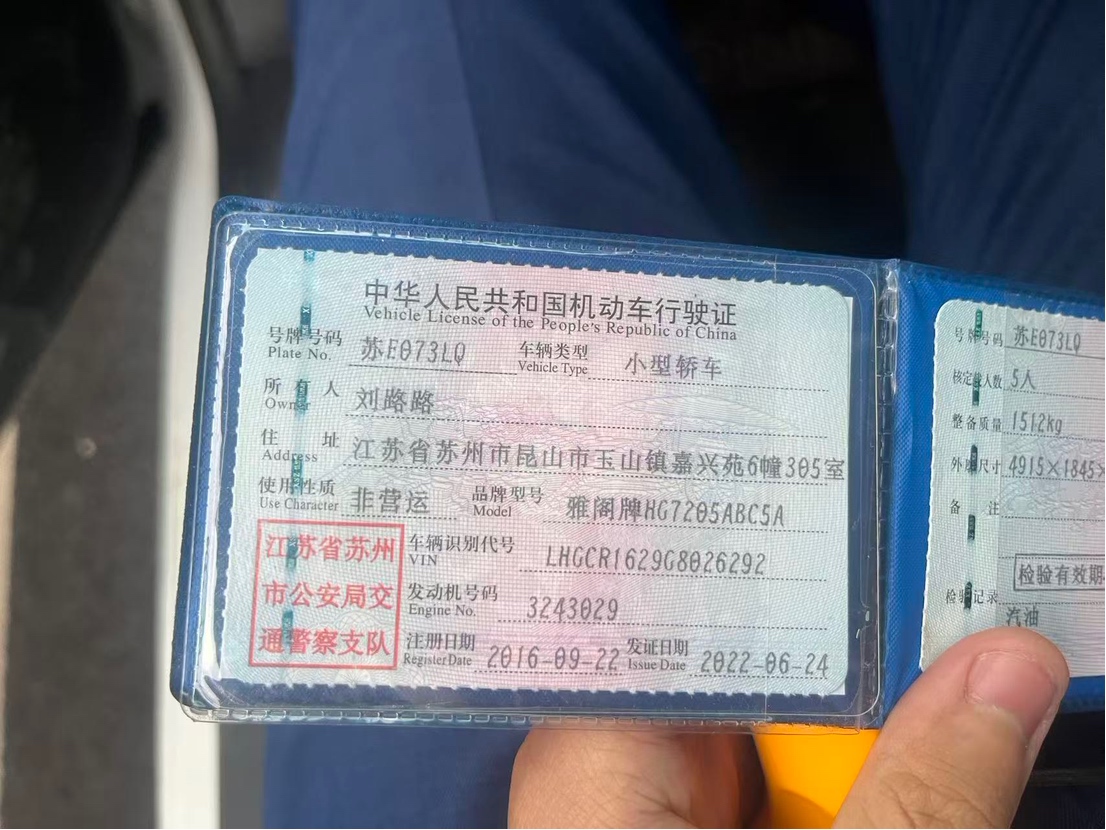 中华人民共和国机动车行驶证
Vehicle License of the People's Republic of China
号牌号码 苏E073LQ 车辆类型 小型轿车
Plate No. Vehicle Type
所有人 刘路路
Owner
住址 江苏省苏州市昆山市玉山镇嘉兴苑6幢305室
Address
使用性质 非营运 品牌型号 雅阁牌HG7205ABC5A
Use Character Model
江苏省苏州
市公安局交
通警察支队
车辆识别代号 LHGCR1629G8026292
VIN
发动机号码 3243029
Engine No.
注册日期 2016-09-22 发证日期 2022-06-24
Register Date Issue Date
号牌号码 苏E073LQ
核定载人数 5人
整备质量 1512kg
外廓尺寸 4915×1845×
备注
检验有效期
检验记录
汽油